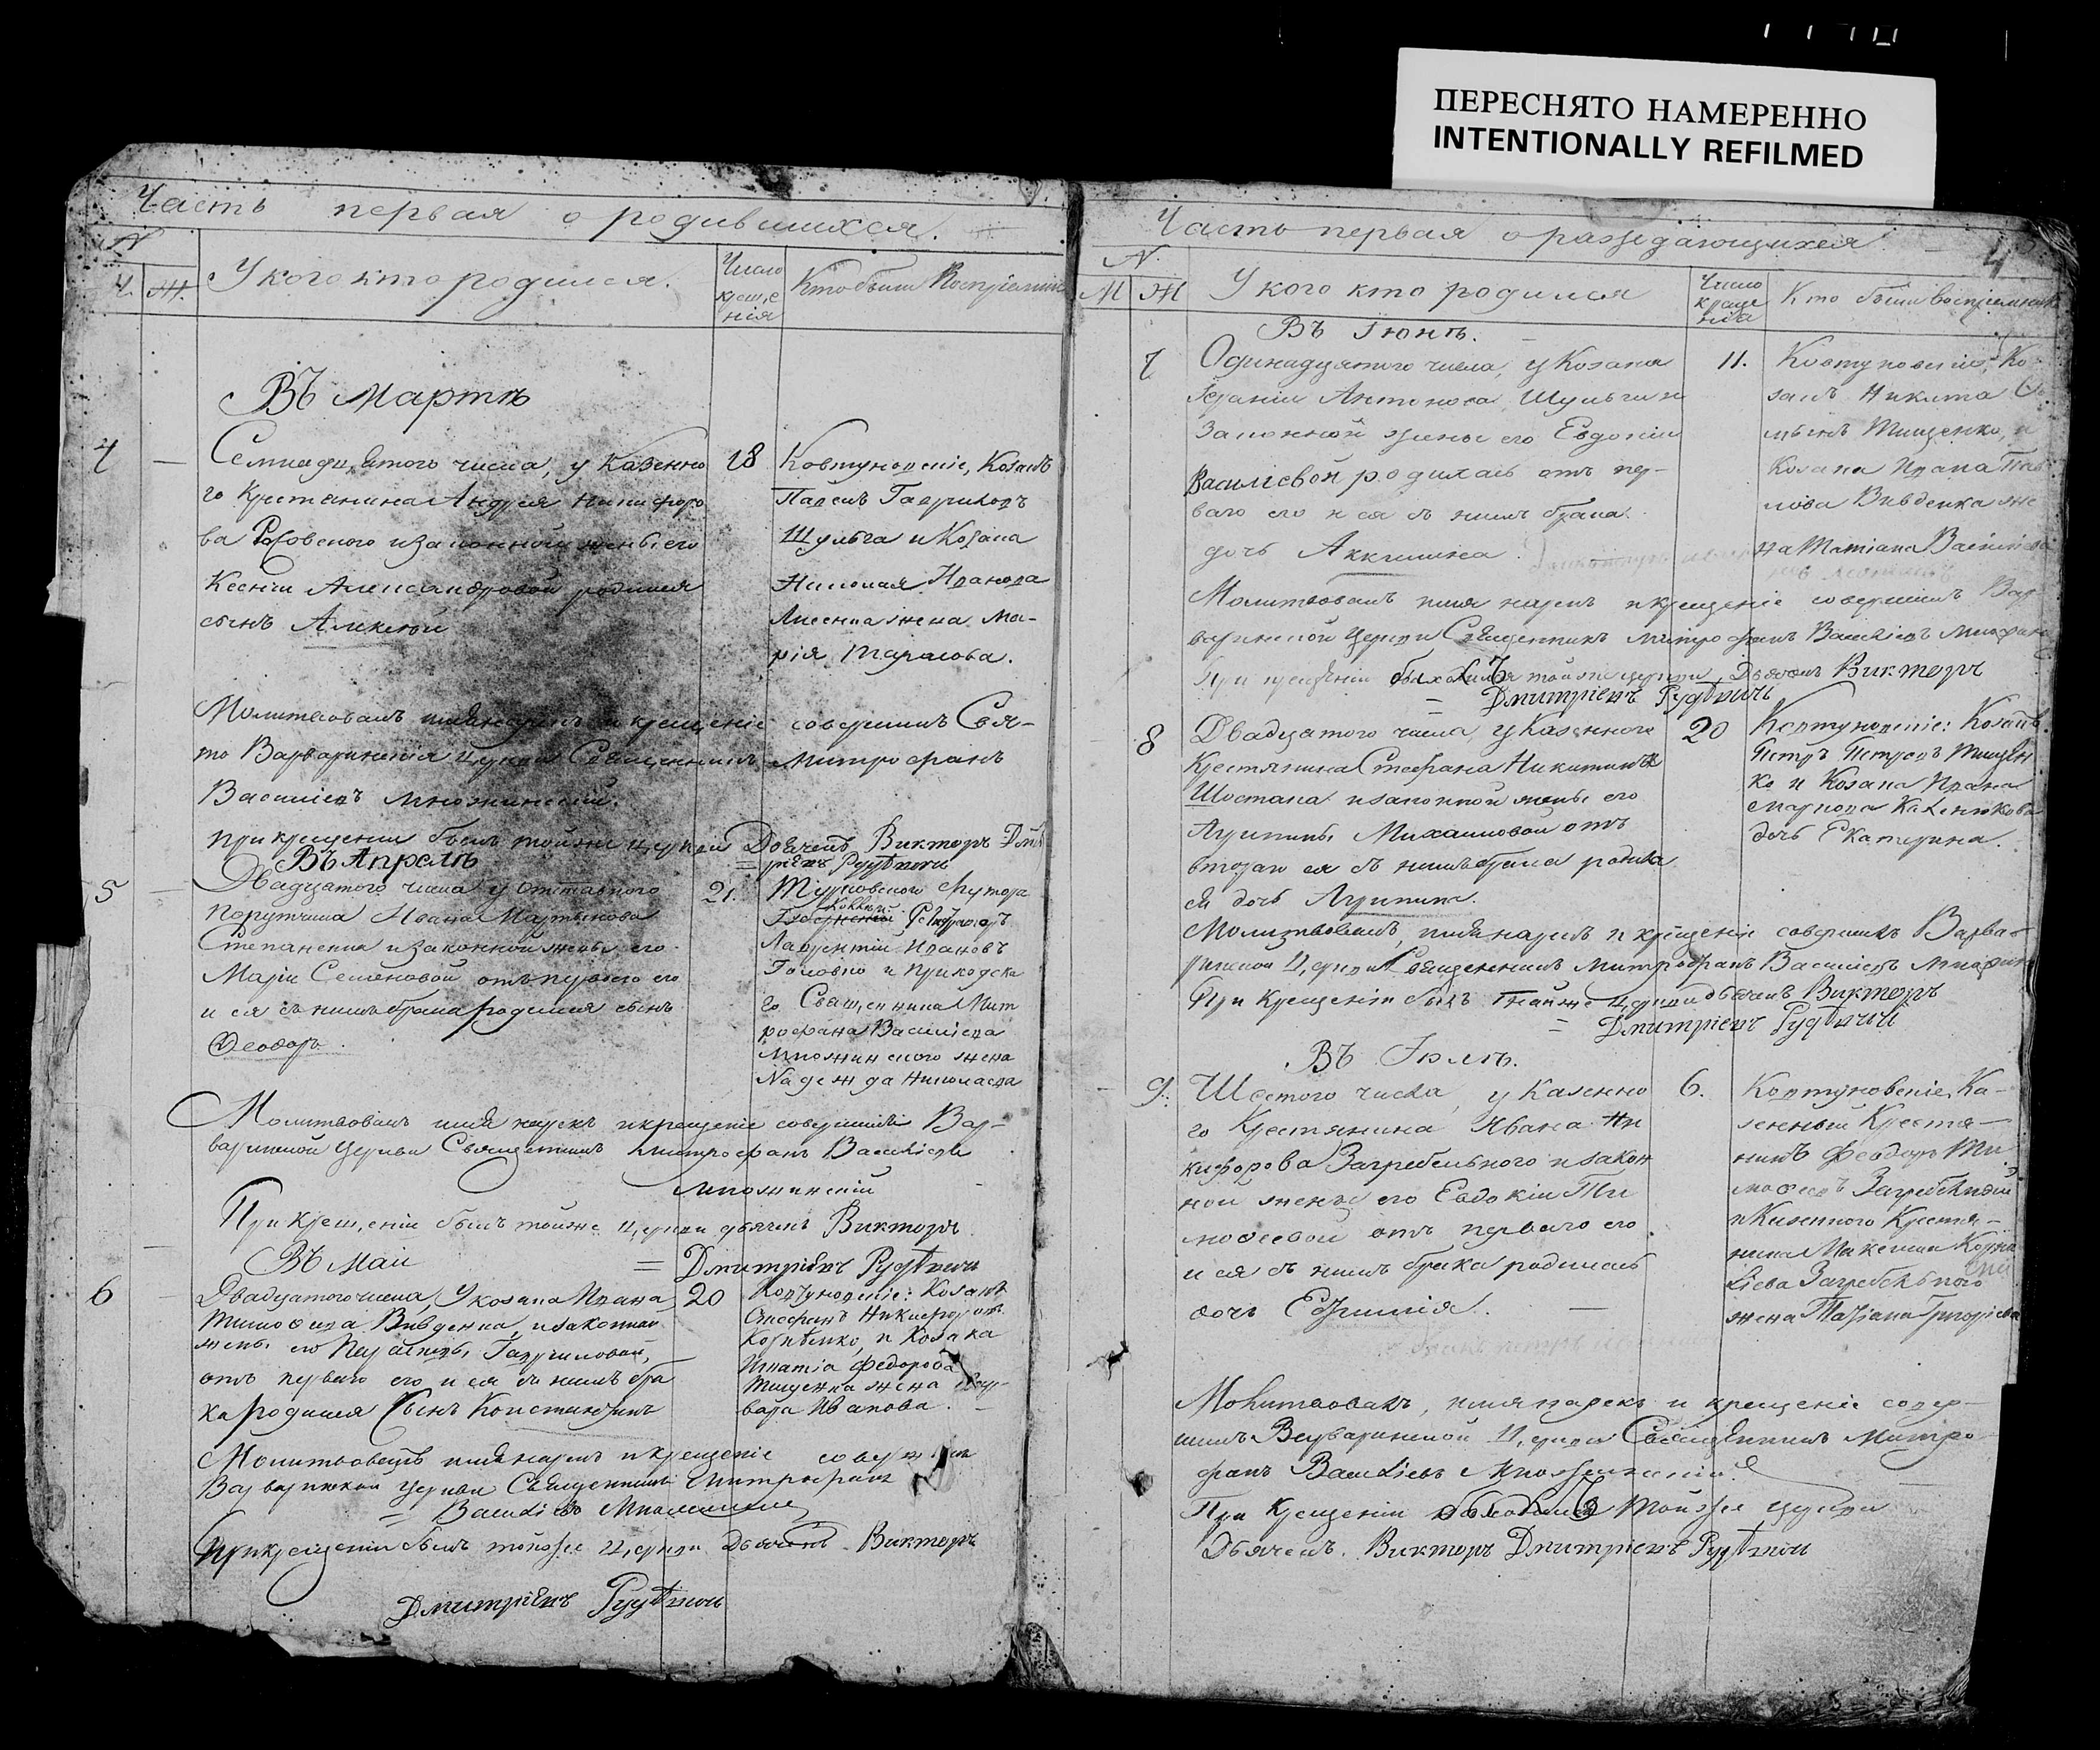 ПЕРЕСНЯТО НАМЕРЕННО
INTENTIONALLY REFILMED
Часть первая о родившихся.
N
Ч. Ж.
У кого кто родился.
Число креще нія
Кто были Воспріемник
Въ Мартѣ
4
Семнадцатого числа, у казенно
го Крестьянина Андрея Никифоро
ва и законной жены его
Ксеніи Александровой родился
сынъ Алексѣй
18
Ковтуновскіе, Козакъ
Павелъ Гавриловъ
Шульга и Козака
Николая Иванова
Лисенка жена Ма-
рія Тарасова.
Молитвовалъ имя нарекъ и крещеніе совершилъ Свя-
то Варваринскія церкви Священникъ Митрофанъ
Василіевъ Множинскій.
При крещеніи былъ тойже церкви Дьячекъ Викторъ Дми
тріевъ
Въ Апрелѣ
5
Двадцатого числа у отставного
Порутчика Ивана Мартынова
Степаненка и законной жены его
Маріи Семеновой отъ перваго его
и ея съ нимъ брака родился сынъ
Ѳеодоръ.
21.
хутора
Лаврентій Ивановъ
Головко и приходска
го Священника Мит
рофана Василіева
Множинского жена
Надежда Николаева
Молитвовалъ имя нарекъ и крещеніе совершилъ Вар-
варинской Церкви Священникъ Митрофанъ Василіевъ
Множинскій
При крещеніи былъ тойже церкви дьячекъ Викторъ
= Дмитріевъ
Въ Маи
6
Двадцатого числа, У козака Ивана
Тимоѳіева Вивденка, и законной
жены его Параскевы Гавриловой,
отъ перваго его и ея съ нимъ бра
ка родился Сынъ Константинъ
20
Ковтуновскіе: Козакъ
Стефанъ Никифоровъ
и Козака
Игнатія Федорова
Тищенка жена Вар-
вара Иванова.
Молитвовалъ имя нарекъ и крещеніе совершилъ
Варваринской Церкви Священникъ Митрофанъ
= Василіевъ Множинскій
При крещеніи былъ тойже церкви Дьячекъ Викторъ
Дмитріевъ
Часть первая о раждающихся
4
N.
М Ж
У кого кто родился
Число креще нія
Кто были воспріемники
Въ Іюнѣ.
7
Одинадцатого числа, у Козака
Антонова Шульги и
Законной жены его Евдокіи
Василіевой родилась отъ пер-
ваго его и ея съ нимъ брака
дочь Акилина.
11.
Ковтуновскіе, Ко-
закъ Никита
Тищенко, и
Козака Ивана
Вивденка же
на Татіана Василіева
Молитвовалъ имя нарекъ и крещеніе совершилъ Вар
варинской Церкви Священникъ Митрофанъ Василіевъ
При крещеніи находился тойже церкви, Дьячекъ Викторъ
= Дмитріевъ
8
Двадцатого числа, у Казенного
Крестянина Стефана Никитина
Шостака и законной жены его
Агрипины Михаиловой отъ
втораго ея съ нимъ брака родила
ся дочь Агрипина.
20
Ковтуновскіе: Козакъ
Петръ Петровъ Тищен
ко и Козака Ивана
дочь Екатерина.
Молитвовалъ, имя нарекъ и крещеніе совершилъ Варва-
ринской Церкви Священникъ Митрофанъ Василіевъ
При Крещеніи былъ тойже Церкви дьячекъ Викторъ
= Дмитріевъ
Въ Іюлѣ.
9.
Шестого числа, у Казенно
го Крестянина Ивана Ни
кифорова Загребельного и закон
ной жены его Евдокіи Ти
моѳеевой отъ перваго его
и ея съ нимъ брака родилась
дочь Ефимія.
6.
Ковтуновскіе, Ка-
зенный Крестя-
нинъ Феодоръ Ти
моѳеевъ Загребельній
и Казенного Крестя-
нина Максима Корни
ліева Загребельного
жена Татіана Григоріева
Молитвовалъ, имя нарекъ и крещеніе совер-
шилъ Варваринской Церкви Священникъ Митро
фанъ Василіевъ Множинскій
При Крещеніи находился тойже церкви
Дьячекъ. Викторъ Дмитріевъ